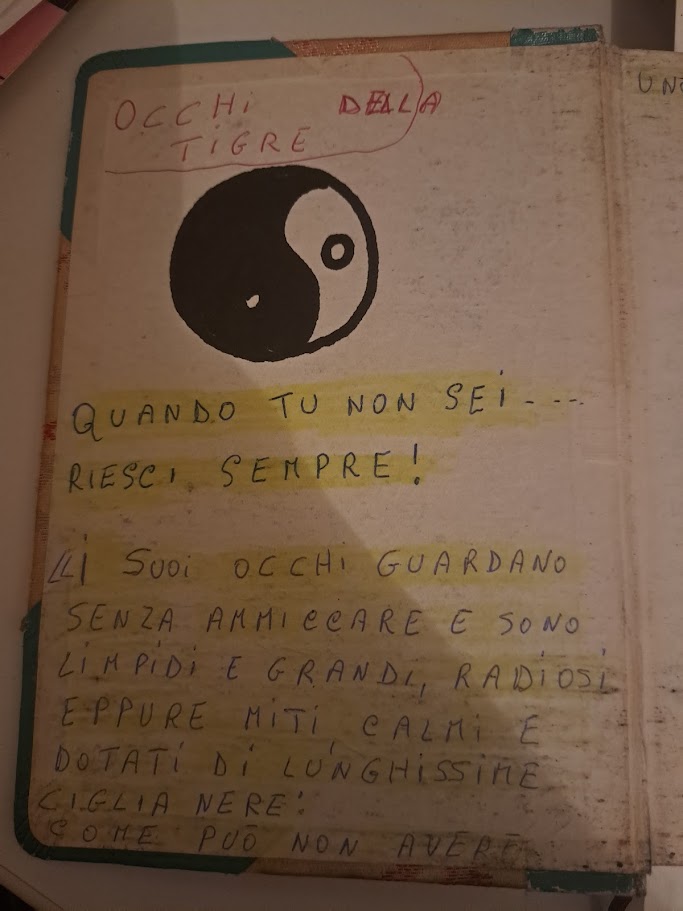 OCCHI DELLA
TIGRE
QUANDO TU NON SEI----
RIESCI SEMPRE!
I SUOI OCCHI GUARDANO
SENZA AMMICCARE E SONO
LIMPIDI E GRANDI, RADIOSI
EPPURE MITI, CALMI E
DOTATI DI LUNGHISSIME
CIGLIA NERE!
COME PUÒ NON AVERE